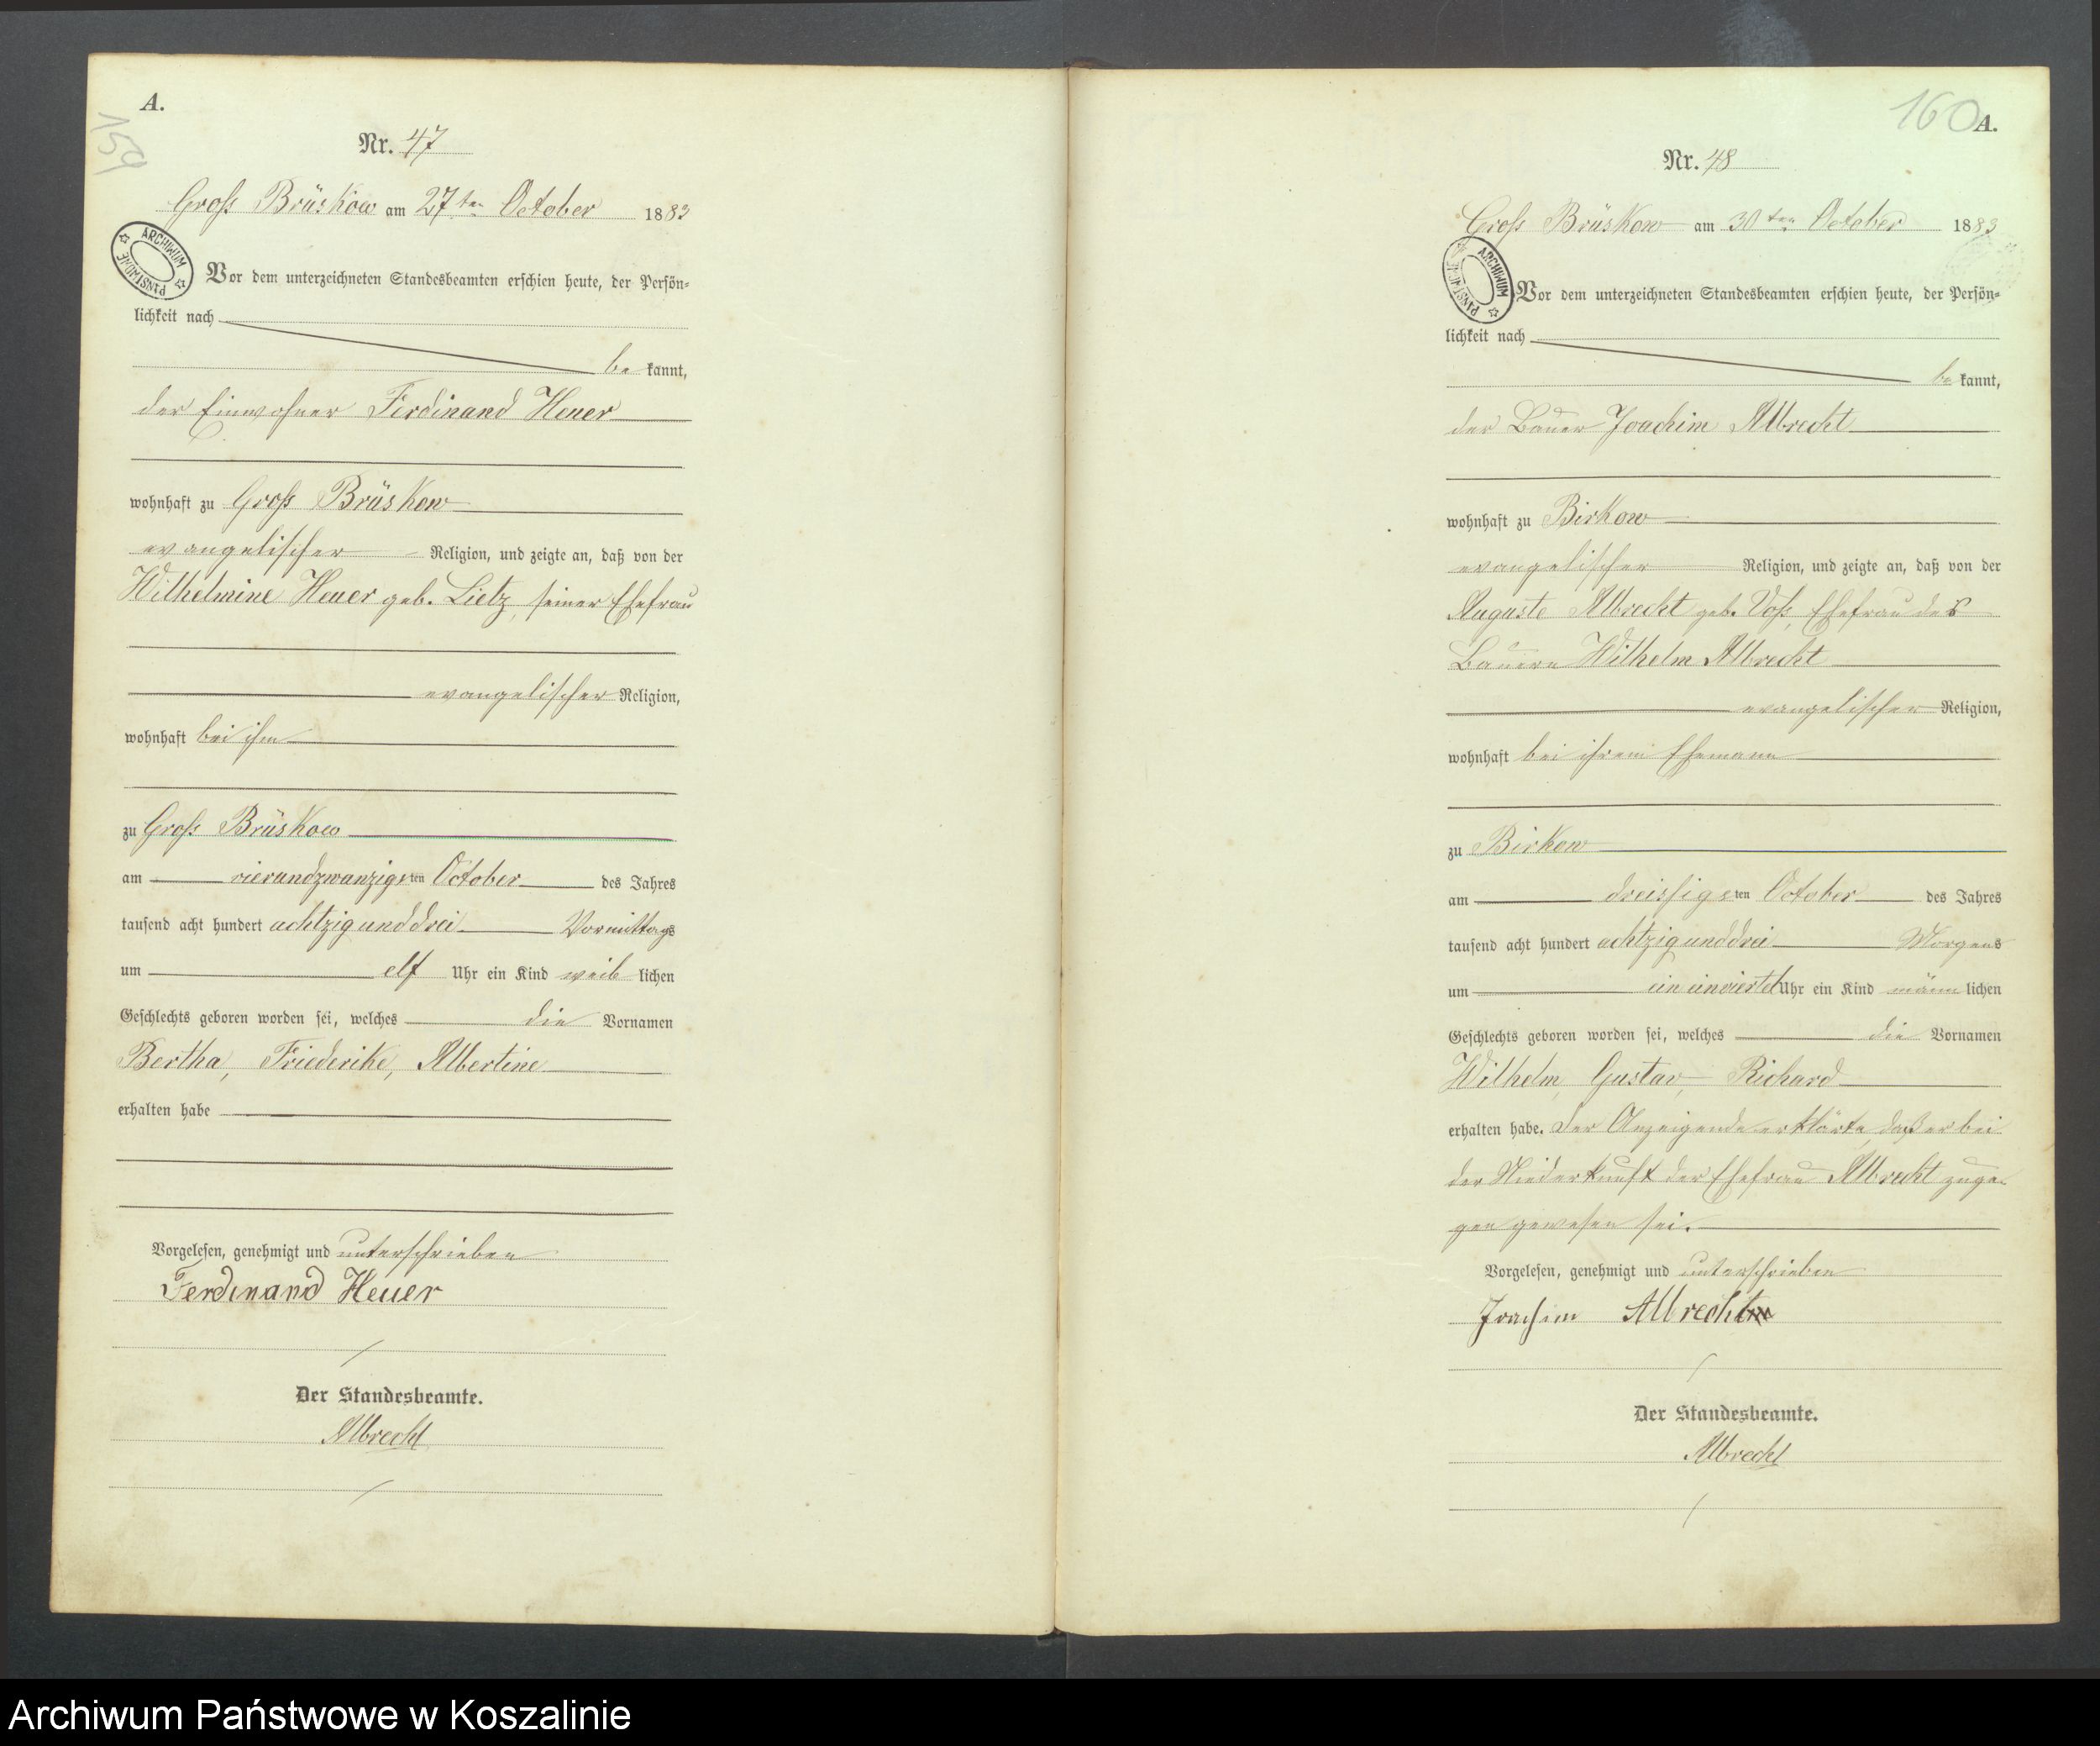 A.
159
Nr. 47
Groß Brüskow am 27ten October 1883
ARCHIWUM PAŃSTWOWE
Vor dem unterzeichneten Standesbeamten erschien heute, der Persön-
lichkeit nach
be kannt,
der Einwohner Ferdinand Heuer
wohnhaft zu Groß Brüskow
evangelischer Religion, und zeigte an, daß von der
Wilhelmine Heuer geb. Lietz, seiner Ehefrau
evangelischer Religion,
wohnhaft bei ihm
zu Groß Brüskow
am vierundzwanzigsten October des Jahres
tausend acht hundert achtzig und drei Vormittags
um elf Uhr ein Kind weib lichen
Geschlechts geboren worden sei, welches die Vornamen
Bertha, Friederike, Albertine
erhalten habe
Vorgelesen, genehmigt und unterschrieben
Ferdinand Heuer
Der Standesbeamte.
Albrecht
160 A.
Nr. 48
Groß Brüskow am 30ten October 1883
ARCHIWUM PAŃSTWOWE
Vor dem unterzeichneten Standesbeamten erschien heute, der Persön-
lichkeit nach
be kannt,
der Bauer Joachim Albrecht
wohnhaft zu Birkow
evangelischer Religion, und zeigte an, daß von der
Auguste Albrecht geb. Voß, Ehefrau des
Bauern Wilhelm Albrecht
evangelischer Religion,
wohnhaft bei ihrem Ehemann
zu Birkow
am dreissigsten October des Jahres
tausend acht hundert achtzig und drei Morgens
um ein einviertel Uhr ein Kind männ lichen
Geschlechts geboren worden sei, welches die Vornamen
Wilhelm, Gustav, Richard
erhalten habe. Der Anzeigende erklärte, daß er bei
der Niederkunft der Ehefrau Albrecht zuge-
gen gewesen sei.
Vorgelesen, genehmigt und unterschrieben
Joachim Albrecht
Der Standesbeamte.
Albrecht
Archiwum Państwowe w Koszalinie